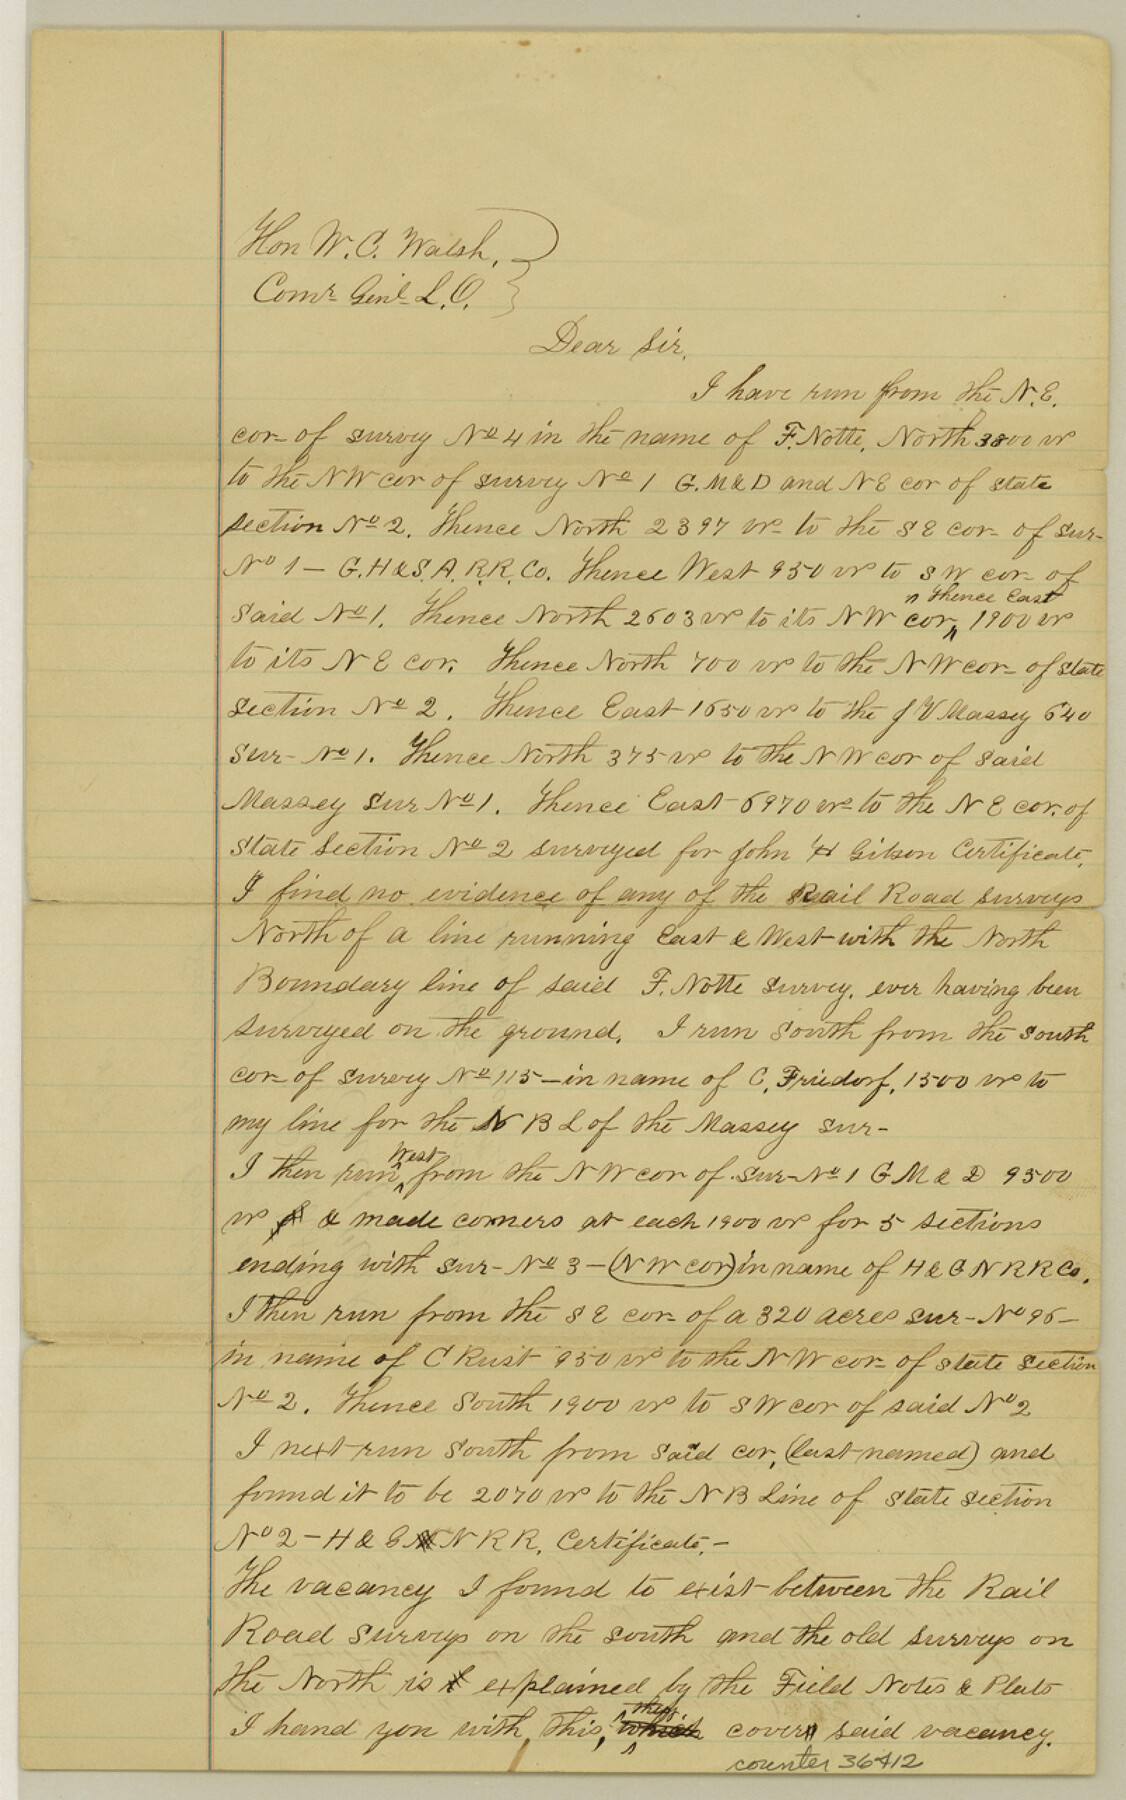 Hon W. C. Walsh,
Comr Genl L. O.
Dear Sir,
I have run from the N. E.
cor- of survey No 4 in the name of F. Notte, North 3800 vrs
to the N W cor of survey No 1 G. M & D and N E cor of state
section No 2. Thence North 2397 vrs to the S E cor- of sur-
No 1 - G. H & S. A. R. R. Co. Thence West 950 vrs to S W cor- of
Thence East
said No 1. Thence North 2603 vrs to its N W cor, 1900 vrs
to its N E cor. Thence North 700 vrs to the N W cor- of state
section No 2. Thence East 1650 vrs to the J V Massey 640
sur- No 1. Thence North 375 vrs to the N W cor of said
Massey sur No 1. Thence East 6970 vrs to the N E cor. of
state section No 2 surveyed for John H Gibson Certificate.
I find no evidence of any of the Rail Road surveys
North of a line running East & West with the North
Boundary line of said F. Notte survey, ever having been
surveyed on the ground. I run south from the south
cor- of survey No 115 - in name of C. Friedorf, 1500 vrs to
my line for the N B L of the Massey sur-
West
I then run from the N W cor of sur- No 1 G M & D 9500
vrs & made corners at each 1900 vrs for 5 sections
ending with sur- No 3 - (N W cor) in name of H & G N R R Co.
I then run from the S E cor- of a 320 acres sur- No 96 -
in name of C Rust 950 vrs to the N W cor- of state section
No 2. Thence South 1900 vrs to S W cor of said No 2
I next run South from said cor, (last named) and
found it to be 2070 vrs to the N B Line of state section
No 2 - H & G N R R. Certificate. -
The vacancy I found to exist between the Rail
Road surveys on the south and the old surveys on
the North is explained by the Field Notes & Plats
I hand you with this, which cover said vacancy.
counter 36412